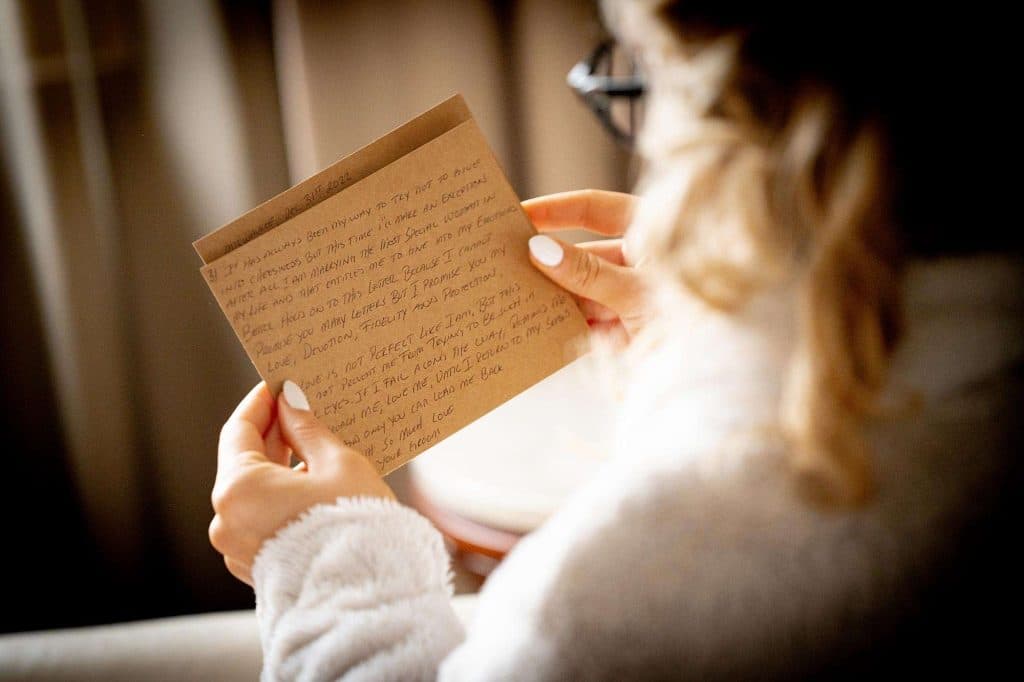 2022
IT HAS ALWAYS BEEN MY WAY TO TRY NOT TO DIVULGE
INTO CHEESINESS BUT THIS TIME I'LL MAKE AN EXCEPTION
AFTER ALL I AM MARRYING THE MOST SPECIAL WOMAN IN
MY LIFE AND THAT ENTITLES ME TO DIVE INTO MY EMOTIONS
HOLD ON TO THIS LETTER BECAUSE I CANNOT
PROMISE YOU MANY LETTERS BUT I PROMISE YOU MY
LOVE, DEVOTION, FIDELITY AND PROTECTION,
LOVE IS NOT PERFECT LIKE I AM, BUT THIS
NOT PREVENT ME FROM TRYING TO BE SUCH IN
EYES. IF I FAIL ALONG THE WAY, REMIND ME
ME, LOVE ME, UNTIL I RETURN TO MY SENSES
AND ONLY YOU CAN LEAD ME BACK
SO MUCH LOVE
YOUR GROOM